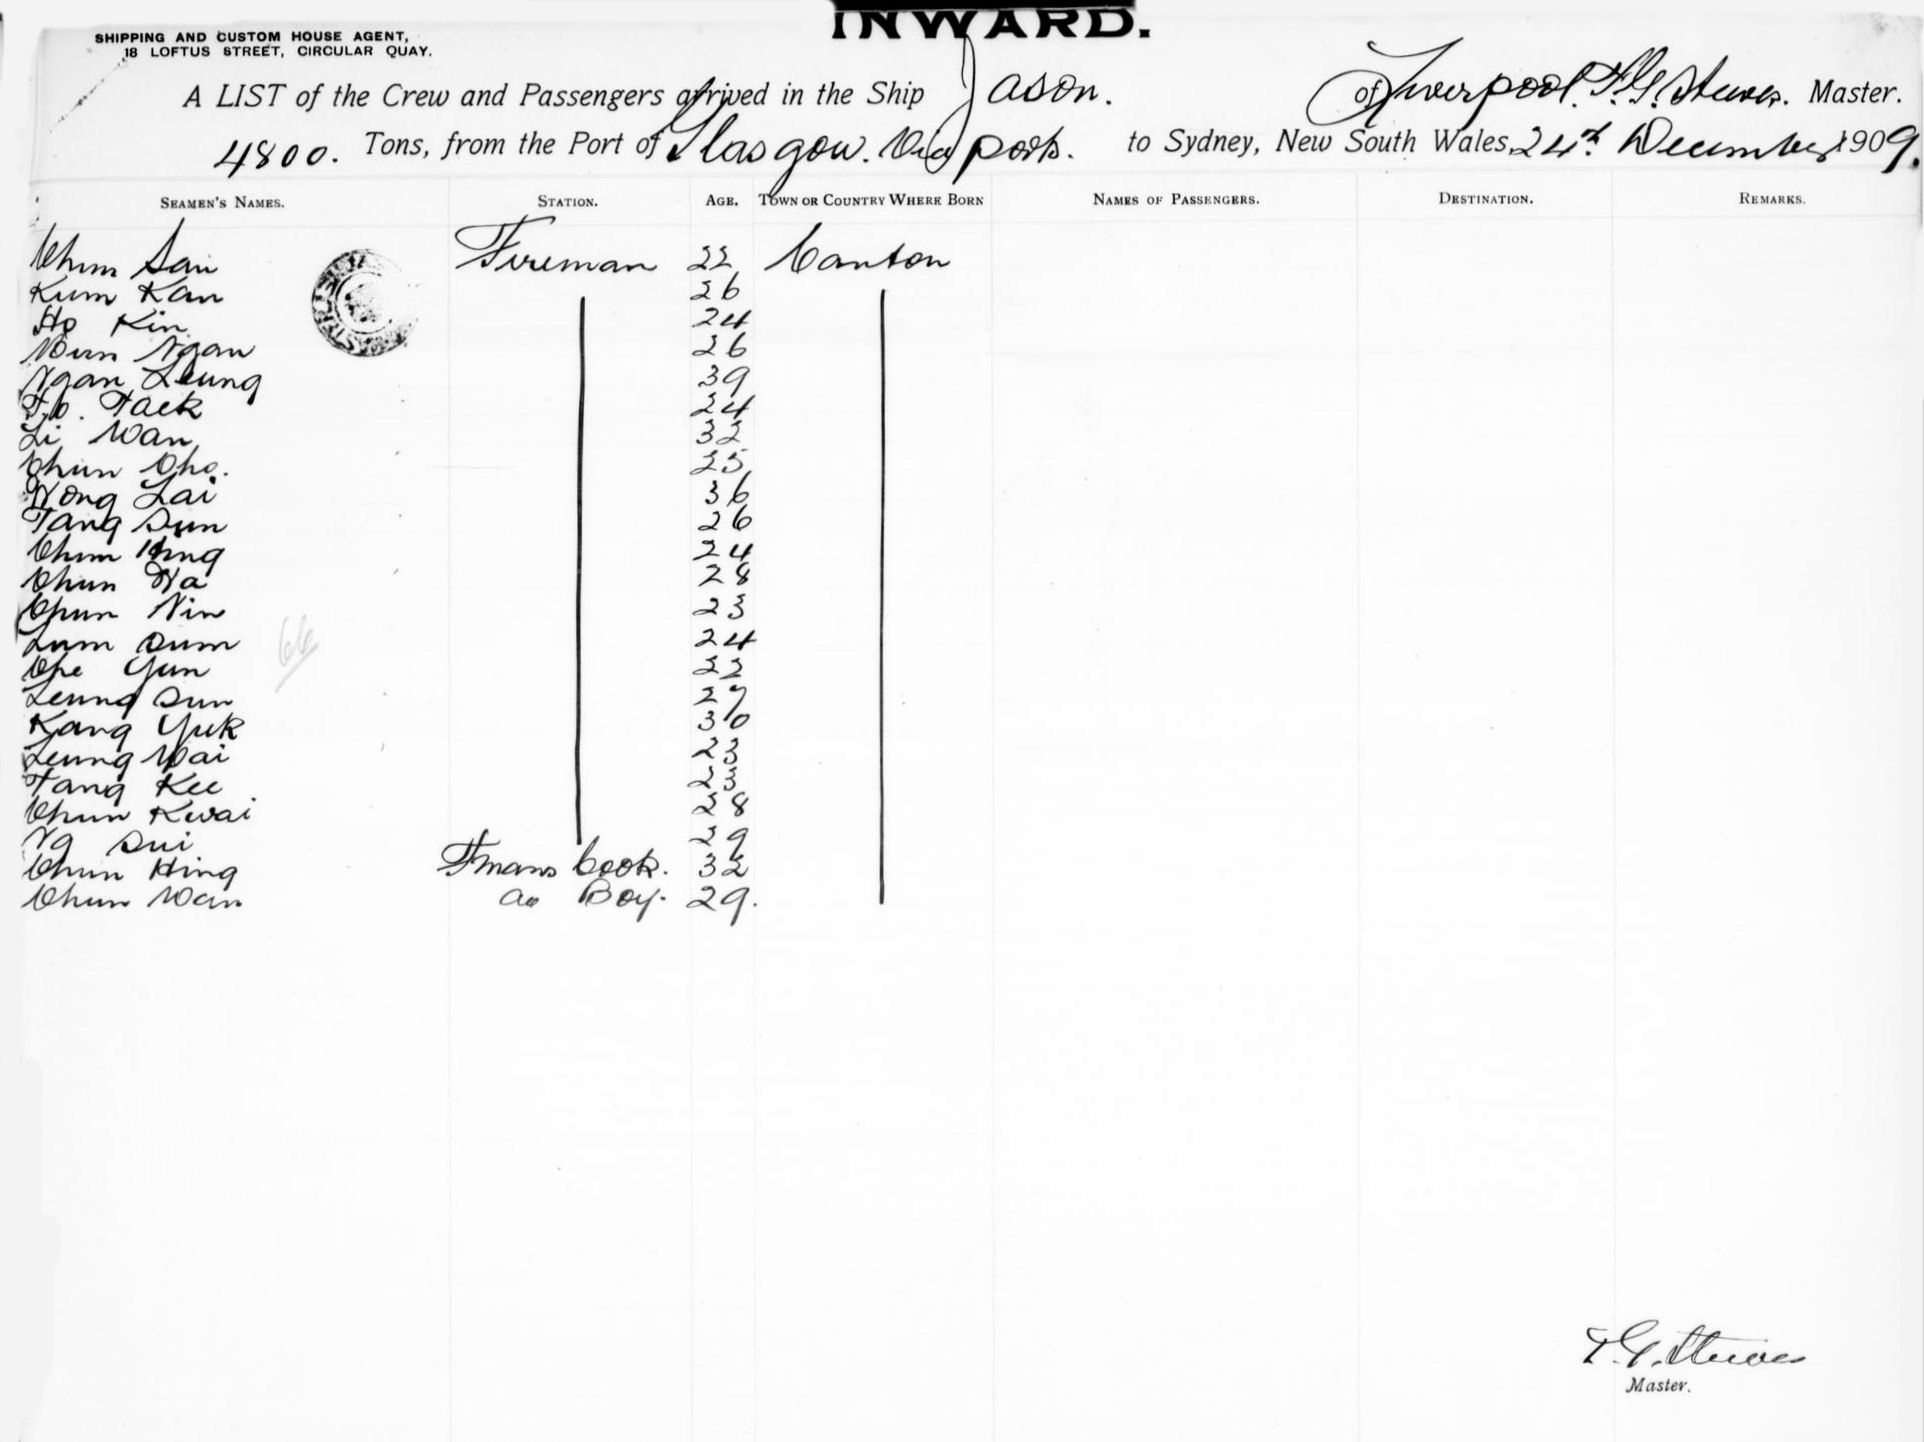 INWARD.
SHIPPING AND CUSTOM HOUSE AGENT,
18 LOFTUS STREET, CIRCULAR QUAY.
A LIST of the Crew and Passengers arrived in the Ship Jason. of Liverpool. Master.
4800. Tons, from the Port of Glasgow. Via ports. to Sydney, New South Wales, 24th December 1909.
SEAMEN'S NAMES. STATION. AGE. TOWN OR COUNTRY WHERE BORN NAMES OF PASSENGERS. DESTINATION. REMARKS.
Chun San Fireman 22 Canton
Kum Kan 26
Ho Kin 24
Ngan 26
Ngan Leung 39
Tack 24
Li Wan 32
Chun Cho. 25
Wong Lai 36
Tang Sun 26
Chun 24
Chun Wa 28
Chun Nin 23
Lum Sum 24
Che Yun 22
Leung Sun 27
Kang Yuk 30
Leung Wai 23
Tang Kee 23
Chun Kwai 28
Ng Sui 29
Chun Hing Fmans Cook. 32
Chun Wan Do Boy. 29.
66
Master.